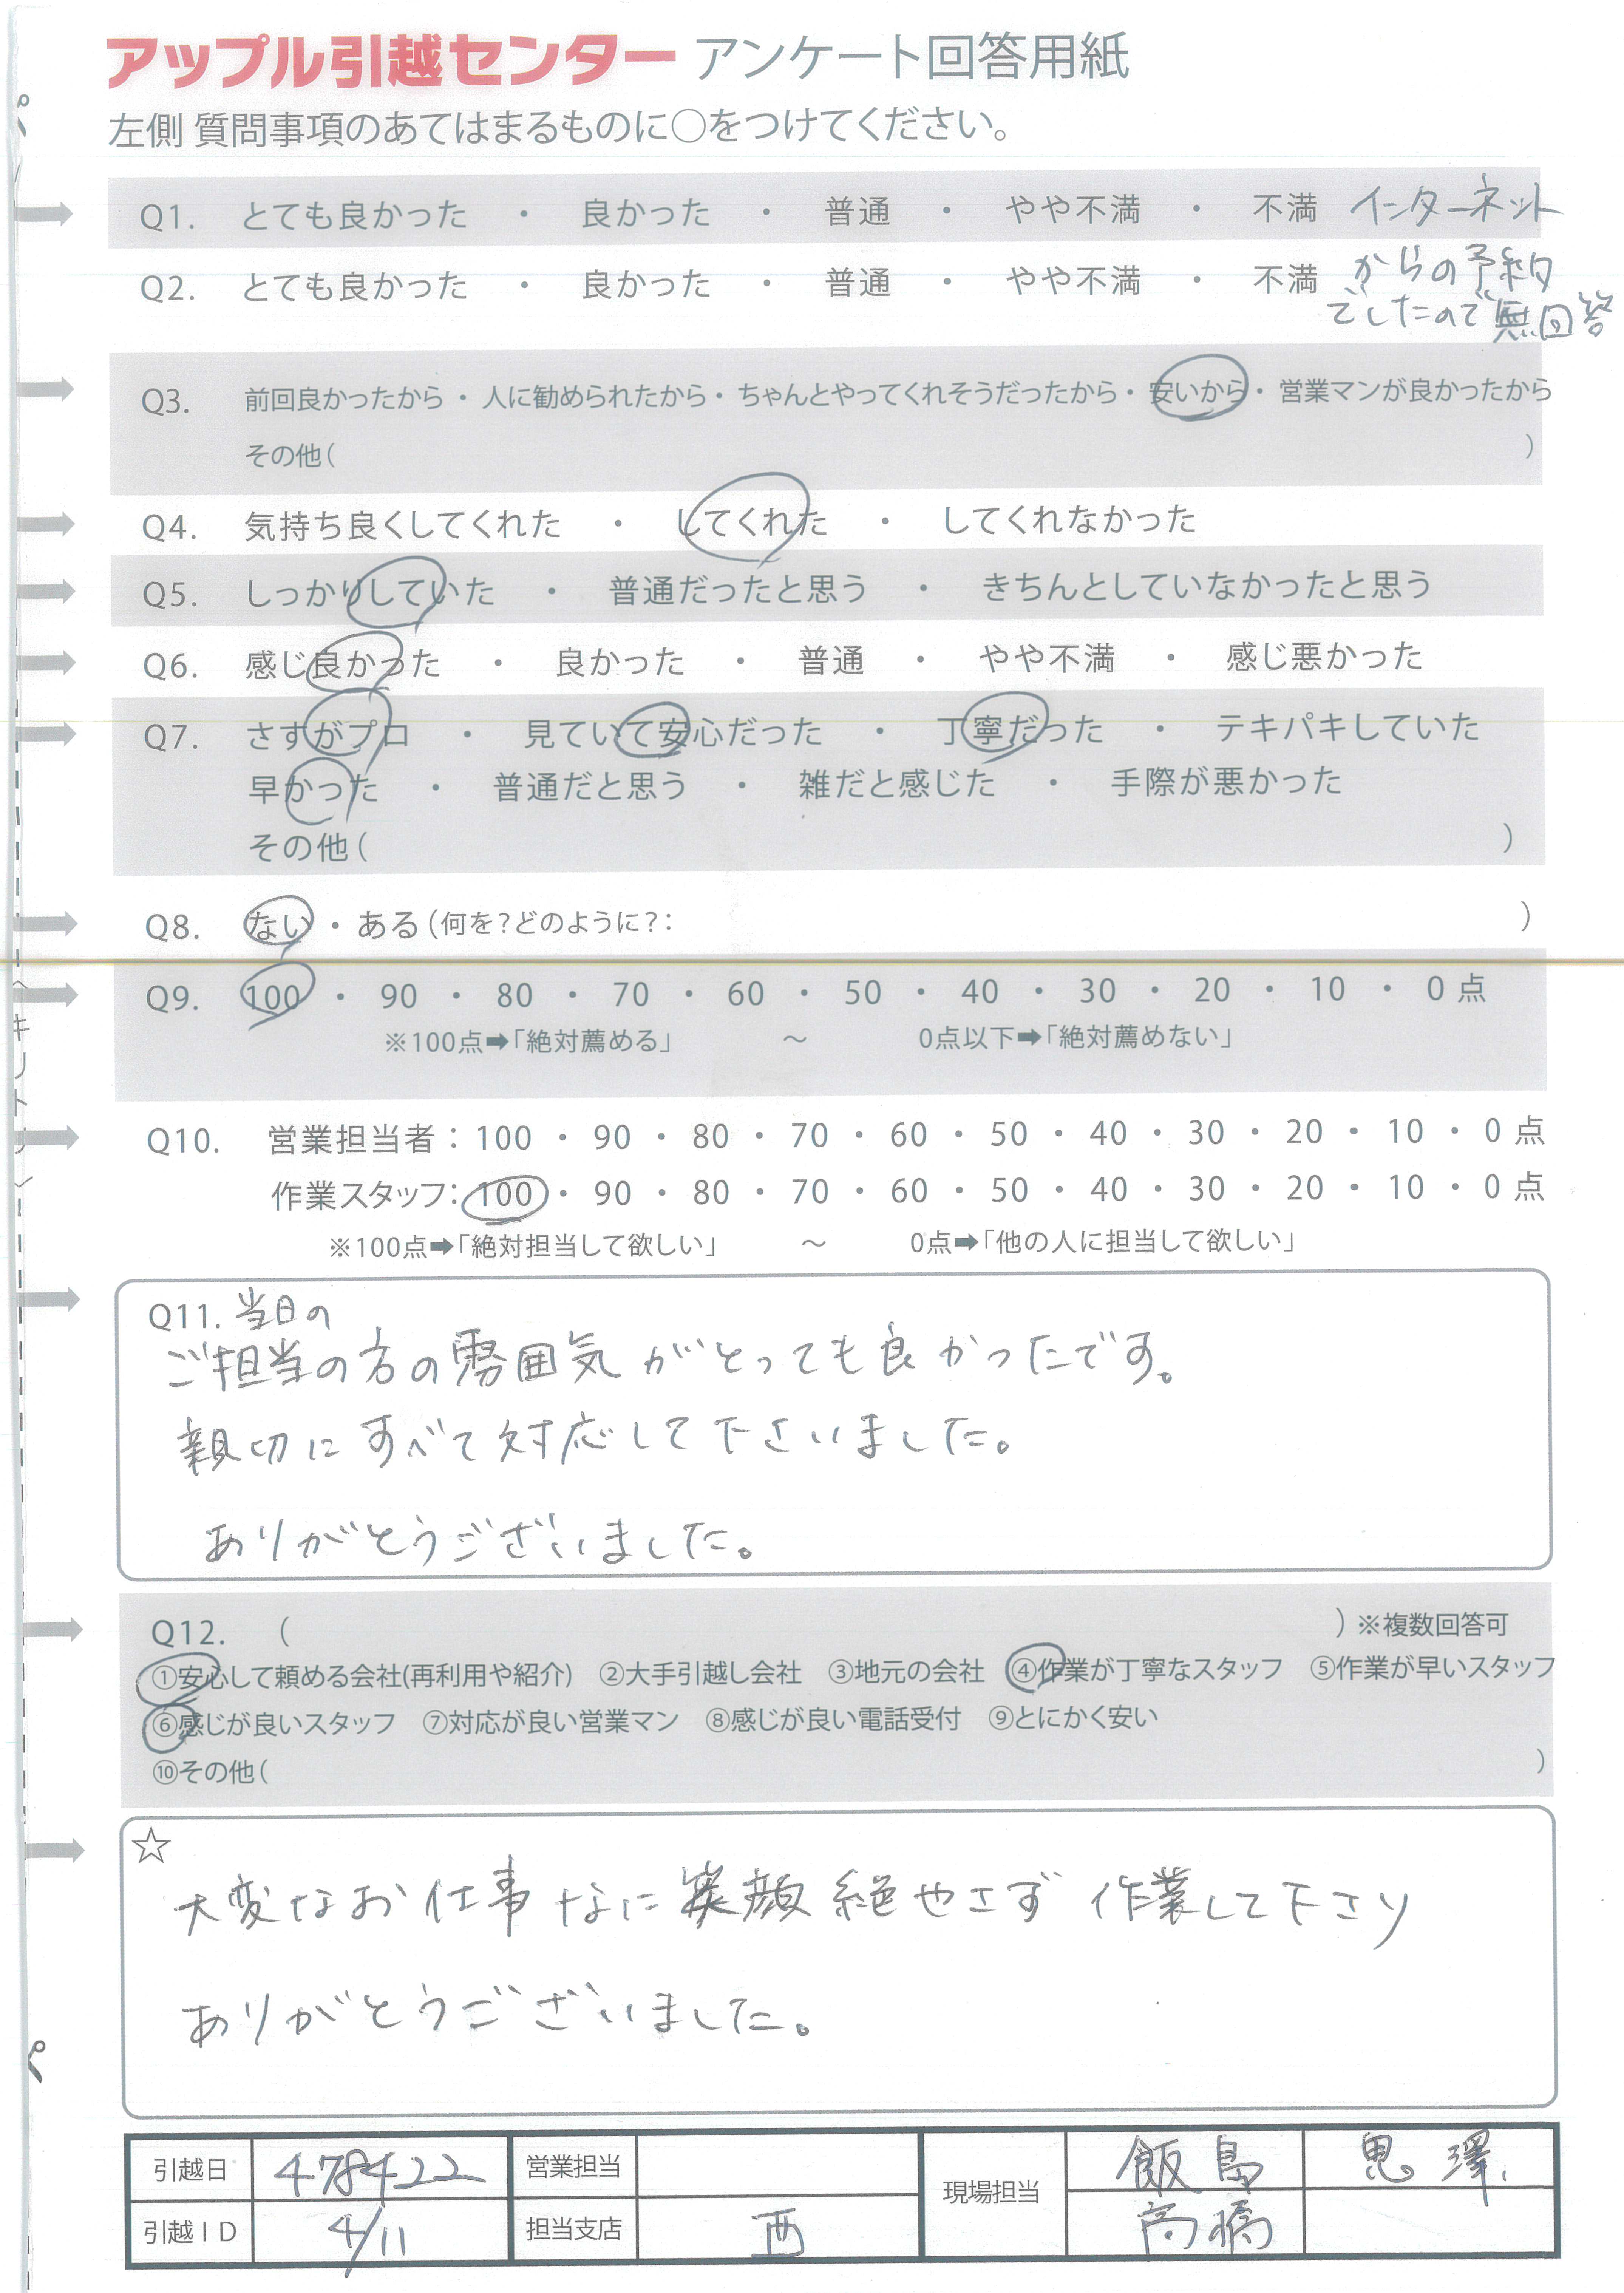 アップル引越センター アンケート回答用紙
左側 質問事項のあてはまるものに○をつけてください。
Q1. とても良かった ・ 良かった ・ 普通 ・ やや不満 ・ 不満 インターネット
Q2. とても良かった ・ 良かった ・ 普通 ・ やや不満 ・ 不満 からの予約
でしたので無回答
Q3. 前回良かったから ・ 人に勧められたから ・ ちゃんとやってくれそうだったから ・ 安いから ・ 営業マンが良かったから
その他( )
Q4. 気持ち良くしてくれた ・ してくれた ・ してくれなかった
Q5. しっかりしていた ・ 普通だったと思う ・ きちんとしていなかったと思う
Q6. 感じ良かった ・ 良かった ・ 普通 ・ やや不満 ・ 感じ悪かった
Q7. さすがプロ ・ 見ていて安心だった ・ 丁寧だった ・ テキパキしていた
早かった ・ 普通だと思う ・ 雑だと感じた ・ 手際が悪かった
その他( )
Q8. ない ・ ある(何を?どのように?: )
Q9. 100 ・ 90 ・ 80 ・ 70 ・ 60 ・ 50 ・ 40 ・ 30 ・ 20 ・ 10 ・ 0 点
※100点➡「絶対薦める」 ～ 0点以下➡「絶対薦めない」
キリトリ
Q10. 営業担当者：100 ・ 90 ・ 80 ・ 70 ・ 60 ・ 50 ・ 40 ・ 30 ・ 20 ・ 10 ・ 0 点
作業スタッフ：100 ・ 90 ・ 80 ・ 70 ・ 60 ・ 50 ・ 40 ・ 30 ・ 20 ・ 10 ・ 0 点
※100点➡「絶対担当して欲しい」 ～ 0点➡「他の人に担当して欲しい」
Q11. 当日の
ご担当の方の雰囲気がとっても良かったです。
親切にすべて対応して下さいました。
ありがとうございました。
Q12. ( ) ※複数回答可
①安心して頼める会社(再利用や紹介) ②大手引越し会社 ③地元の会社 ④作業が丁寧なスタッフ ⑤作業が早いスタッフ
⑥感じが良いスタッフ ⑦対応が良い営業マン ⑧感じが良い電話受付 ⑨とにかく安い
⑩その他( )
☆
大変なお仕事なに笑顔絶やさず作業して下さり
ありがとうございました。
引越日 478422 営業担当 現場担当 飯島 黒澤
引越ID 4/11 担当支店 西 高橋